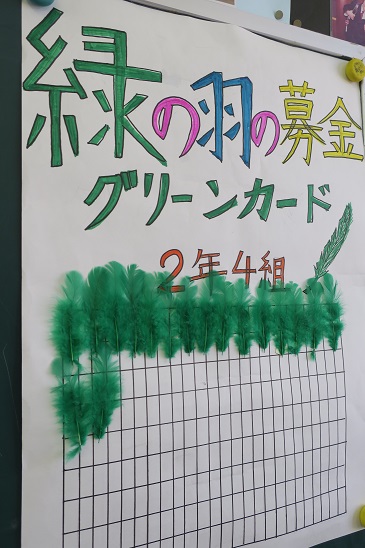 緑の羽の募金
グリーンカード
2年4組